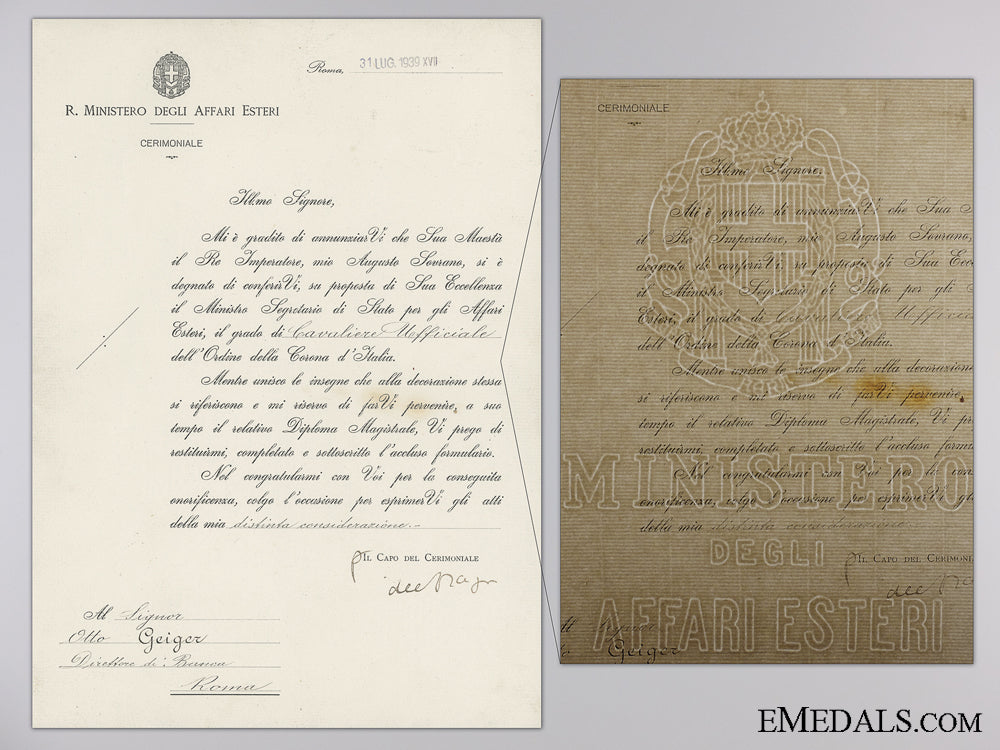 Roma, 31 LUG. 1939 XVII
R. MINISTERO DEGLI AFFARI ESTERI
CERIMONIALE
Ill.mo Signore,
Mi è gradito di annunziarVi che Sua Maestà
il Re Imperatore, mio Augusto Sovrano, si è
degnato di conferirVi, su proposta di Sua Eccellenza
il Ministro Segretario di Stato per gli Affari
Esteri, il grado di Cavaliere Uefficiale
dell'Ordine della Corona d'Italia.
Mentre unisco le insegne che alla decorazione stessa
si riferiscono e mi riservo di farVi pervenire, a suo
tempo il relativo Diploma Magistrale, Vi prego di
restituirmi, completato e sottoscritto l'accluso formulario.
Nel congratularmi con Voi per la conseguita
onorificenza, colgo l'occasione per esprimerVi gli atti
della mia distinta considerazione.-
IL CAPO DEL CERIMONIALE
Al Signor
Otto Geiger
Direttore di Banca
Roma
CERIMONIALE
Ill.mo Signore,
Mi è gradito di annunziarVi che Sua
il Re Imperatore, mio Augusto Sovrano,
degnato di conferirVi, su proposta di Sua Ecce
il Ministro Segretario di Stato per gli
Esteri, il grado di Cavaliere Ufficia
dell'Ordine della Corona d'Italia.
Mentre unisco le insegne che alla decorazione
si riferiscono e mi riservo di farVi pervenire,
tempo il relativo Diploma Magistrale, Vi pr
restituirmi, completato e sottoscritto l'accluso formu
Nel congratularmi con Voi per la con
onorificenza, colgo l'occasione per esprimerVi gl
della mia distinta considerazione
IL CAPO DEL CERIMONI
Geiger
MINISTERO
DEGLI
AFFARI ESTERI
EMEDALS.COM